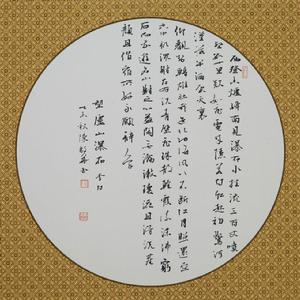 西登香爐峰南見瀑布水挂流三百丈噴
壑數十里欻如飛電來隱若白虹起初驚河
漢落半灑雲天裏
仰觀勢轉雄壯哉造化功海風吹不斷江月照還空
空中亂潨射左右洗青壁飛珠散輕霞流沫沸穹
石而我遊名山對之心益閑無論漱瓊液且得洗塵
顏且諧宿所好永願辭人間
望廬山瀑布 李白
秋陳書